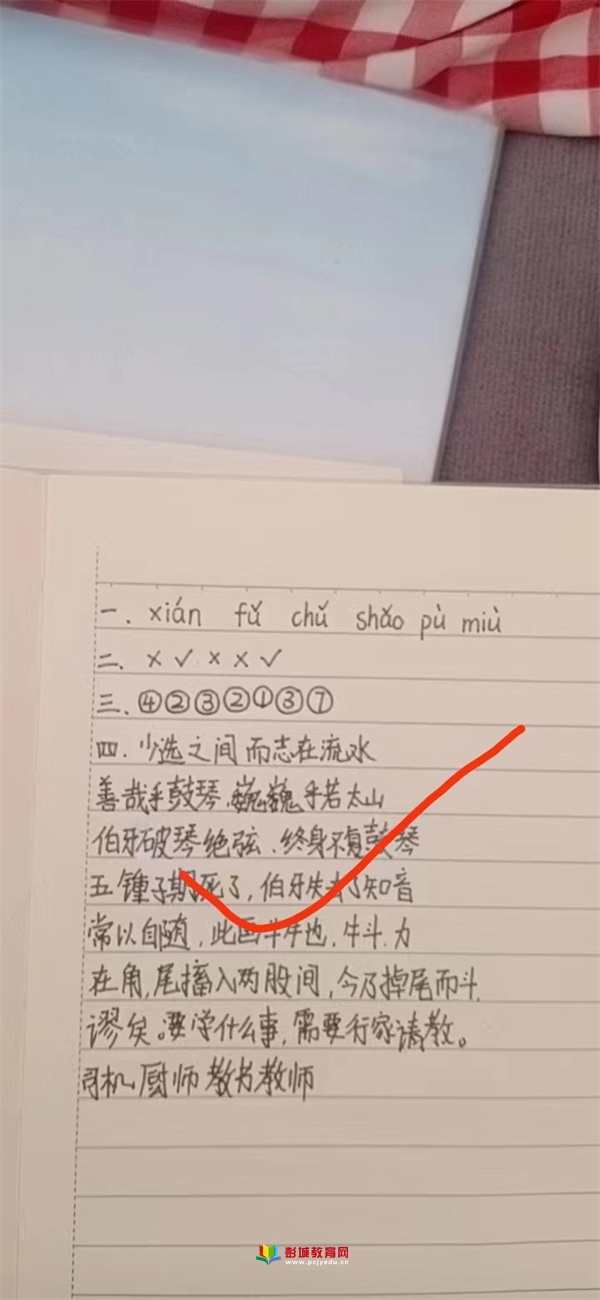 一. xián fǔ chǔ shǎo pù miù
二、× ✓ × × ✓
三、④②③②①③⑦
四.少选之间而志在流水
善哉乎鼓琴,巍巍乎若太山
伯牙破琴绝弦、终身不复鼓琴
五锺子期死了,伯牙失去了知音
常以自随,此画斗牛也,牛斗.力
在角,尾搐入两股间,今乃掉尾而斗.
谬矣。要学什么事,需要行家请教。
司机、厨师 教书教师
彭城教育网
www.pcjyedu.cn